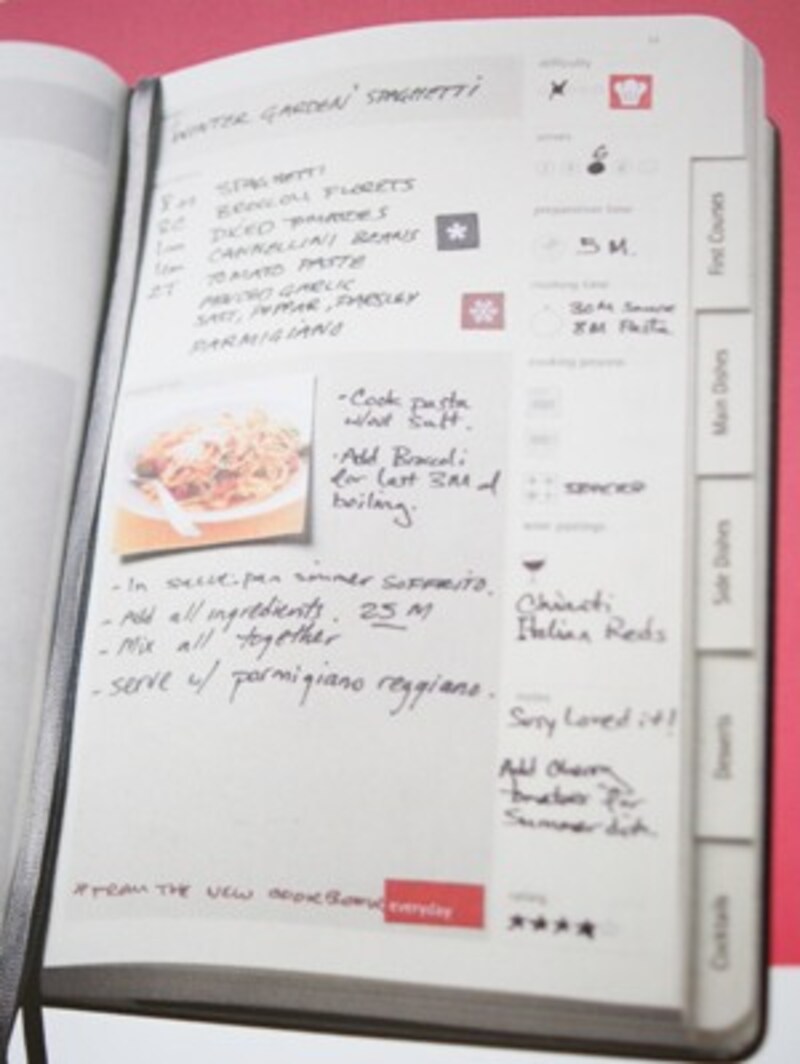 WINTER GARDEN SPAGHETTI
SPAGHETTI
BROCCOLI FLORETS
DICED TOMATOES
CANNELLINI BEANS
2T TOMATO PASTE
MINCED GARLIC
SALT, PEPPER, PARSLEY
PARMIGIANO
- Cook pasta
w/out salt.
- Add Broccoli
for last 3M of
boiling.
- In saucepan simmer SOFFRITO.
- Add all ingredients. 25 M
- Mix all together
- serve w/ parmigiano reggiano.
*FROM THE NEW COOKBOOK
everyday
difficulty
serves
6
preparation time
5 M.
cooking time
30M Sauce
8M Pasta
cooking process
wine pairings
Chianti
Italian Reds
notes
Susy Loved it!
Add Cherry
tomatoes for
Summer dish.
rating
First Courses
Main Dishes
Side Dishes
Desserts
Cocktails